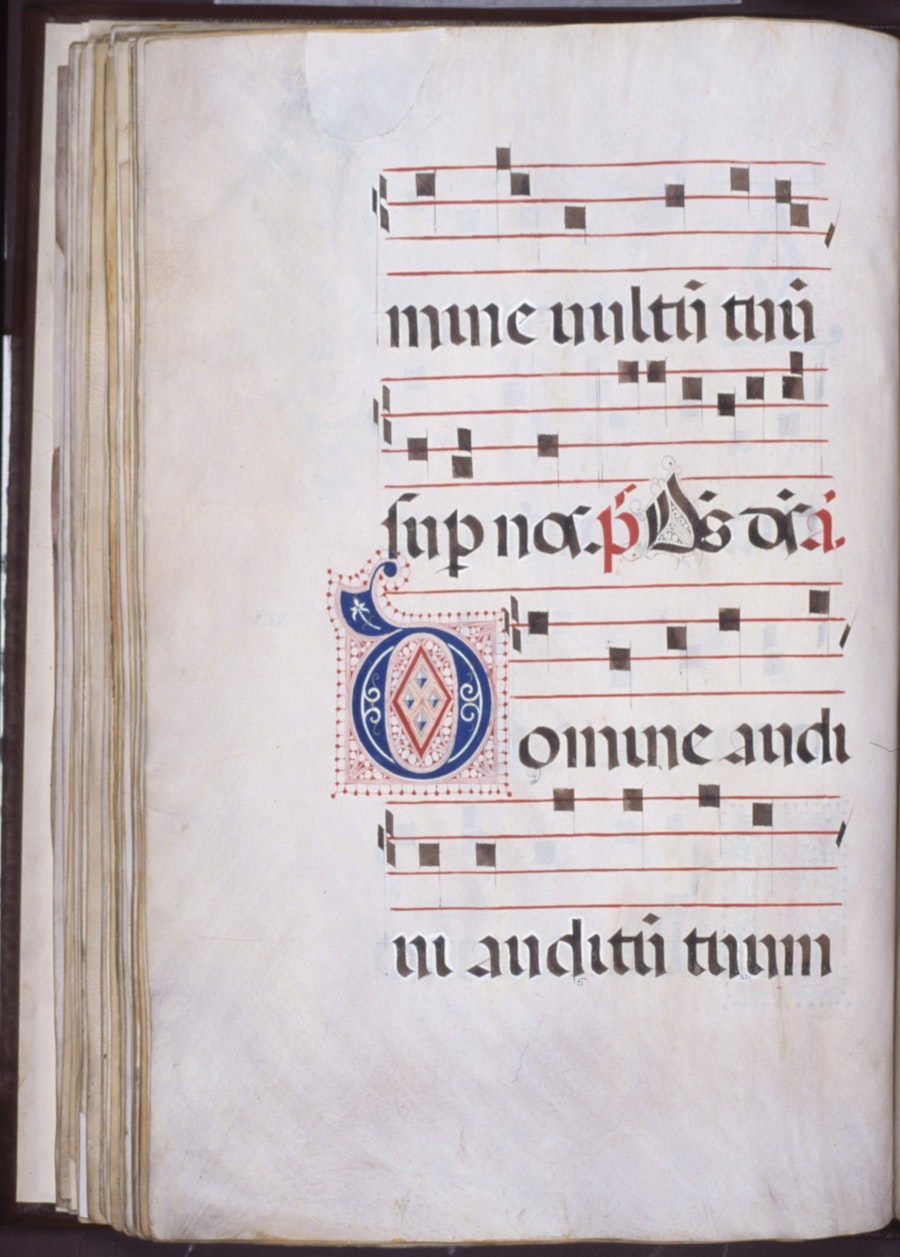 mine uultū tuū
sup nos. p̄s D̄s d̄s a.
Domine audi
ui auditū tuum